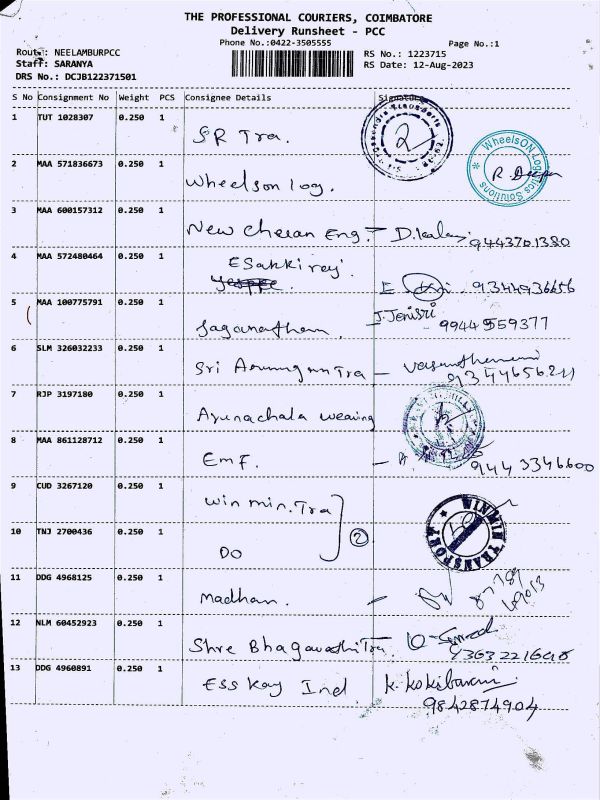 THE PROFESSIONAL COURIERS, COIMBATORE
Delivery Runsheet - PCC
Phone No.:0422-3505555
Page No.:1
Route: NEELAMBURPCC
RS No.: 1223715
Staff: SARANYA
RS Date: 12-Aug-2023
DRS No.: DCJB122371501
S No Consignment No Weight PCS Consignee Details Signature
1 TUT 1028307 0.250 1 SR Tra. 2
2 MAA 571836673 0.250 1 Wheelson Log. WheelsON Logistics Solutions
3 MAA 600157312 0.250 1 New Cheran Eng. 9443701380
4 MAA 572480464 0.250 1 ESakkiraj. E 9344936656
5 MAA 100775791 0.250 1 Jaganatham. J.Jenisri 9944559377
6 SLM 326032233 0.250 1 Sri Tra - 9344656211
7 RJP 3197180 0.250 1 Arunachala weaving
8 MAA 861128712 0.250 1 EMF. - 9443346600
9 CUD 3267120 0.250 1 Win min. Tra
10 TNJ 2700436 0.250 1 DO 2 WINMIN TRANSPORT
11 DDG 4968125 0.250 1 Madhan. -
12 NLM 60452923 0.250 1 Shre Bhagavathi Tra.
13 DDG 4960891 0.250 1 Ess Kay Ind K. Kokilavani 9842874904